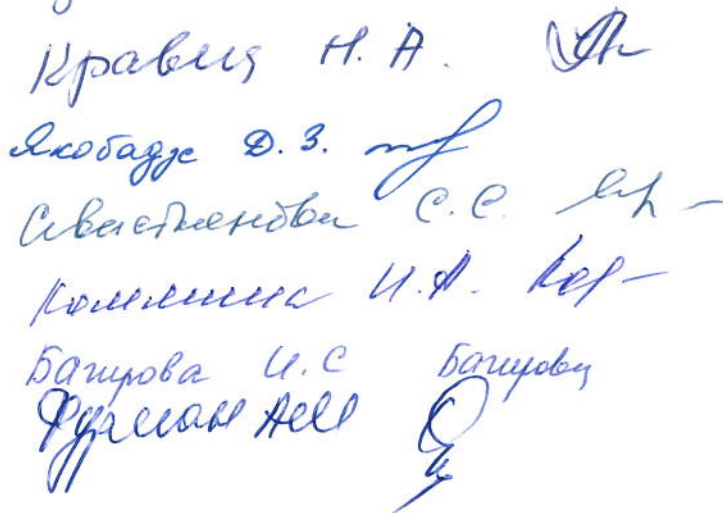 Кравец Н. А.
Якобадзе Д. З.
Севастьянова С. С.
И. А.
Багирова И. С Багирова
Фурман АМ